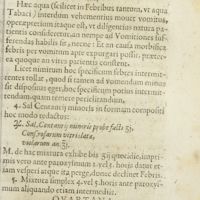 Hæc aqua (scilicet in Febribus tantum, vt aqua
Tabaci) interdum vehementius mouet vomitus,
operæpretium itaque est, vt diligenter natura pa-
tientis consideretur, an nempe ad Vomitiones suf-
ferendas habilis sit, nec ne: Et an causa morbifica
febris per vomitum apte expurgari possit: præter-
ea quoque an vires patientis constent.
Licet nimirum hoc specificum febres intermit-
tentes tollat, quod si tamen ad vomendum minus
sit dispositus æger, hoc specificum potius intermit-
tendum, quam temere periclitandum.
4. Sal Centaurij minoris in formam compositi
hoc modo redactus:
℞. Sal. Centaurij minoris probè facti ʒj.
Conseruarum viti data,
violarum an. ℥j.
M. de hac mixtura exhibe bis ʒij quotidie, impri-
mis vero ante paroxysmum 2. vel 3. horis datur re-
vesperi atque ita perge, donec declinet Febris.
5. Mixtura simplex 4. vel 5. horis ante paroxys-
mum aliquando etiam intermedius.
QVARTANA